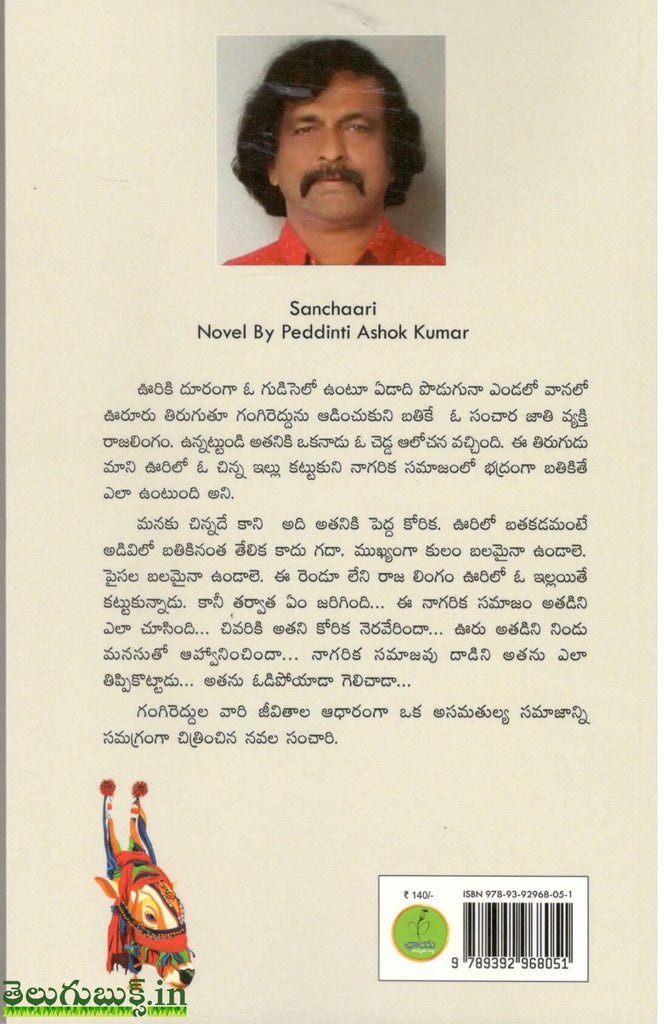 Sanchaari
Novel By Peddinti Ashok Kumar
ఊరికి దూరంగా ఓ గుడిసెలో ఉంటూ ఏడాది పొడుగునా ఎండలో వానలో
ఊరూరు తిరుగుతూ గంగిరెద్దును ఆడించుకుని బతికే ఓ సంచార జాతి వ్యక్తి
రాజలింగం. ఉన్నట్టుండి అతనికి ఒకనాడు ఓ చెడ్డ ఆలోచన వచ్చింది. ఈ తిరుగుడు
మాని ఊరిలో ఓ చిన్న ఇల్లు కట్టుకుని నాగరిక సమాజంలో భద్రంగా బతికితే
ఎలా ఉంటుంది అని.
మనకు చిన్నదే కాని అది అతనికి పెద్ద కోరిక. ఊరిలో బతకడమంటే
అడివిలో బతికినంత తేలిక కాదు గదా. ముఖ్యంగా కులం బలమైనా ఉండాలె.
పైసల బలమైనా ఉండాలె. ఈ రెండూ లేని రాజ లింగం ఊరిలో ఓ ఇల్లయితే
కట్టుకున్నాడు. కానీ తర్వాత ఏం జరిగింది... ఈ నాగరిక సమాజం అతడిని
ఎలా చూసింది... చివరికి అతని కోరిక నెరవేరిందా... ఊరు అతడిని నిండు
మనసుతో ఆహ్వానించిందా... నాగరిక సమాజపు దాడిని అతను ఎలా
తిప్పికొట్టాడు... అతను ఓడిపోయాడా గెలిచాడా...
గంగిరెద్దుల వారి జీవితాల ఆధారంగా ఒక అసమతుల్య సమాజాన్ని
సమగ్రంగా చిత్రించిన నవల సంచారి.
₹ 140/-
ISBN 978-93-92968-05-1
ఛాయ
9 789392 968051
తెలుగుబుక్స్.in